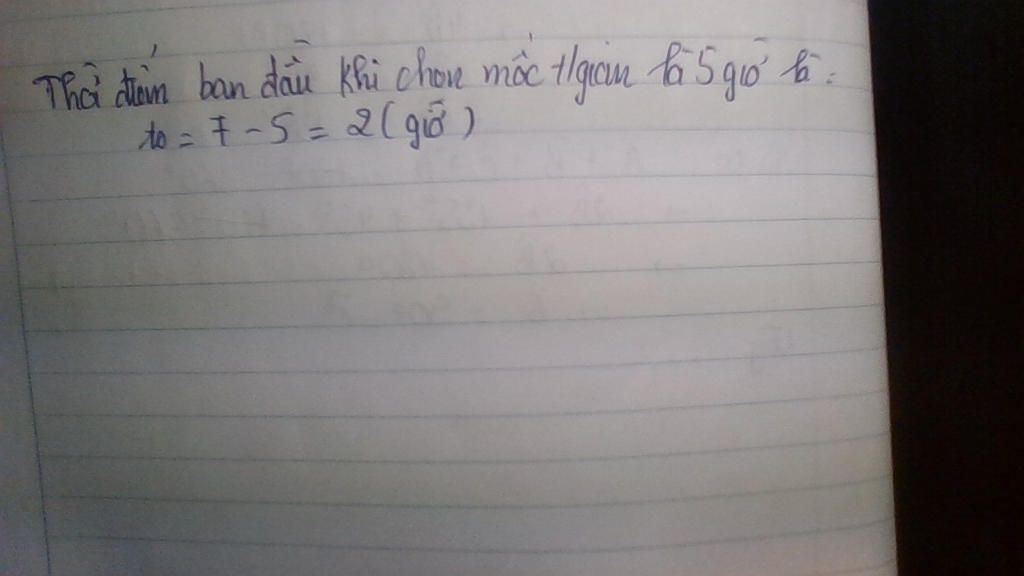 Thời điểm ban đầu khi chọn mốc t/gian là 5 giờ là:
to = 7 - 5 = 2 (giờ)